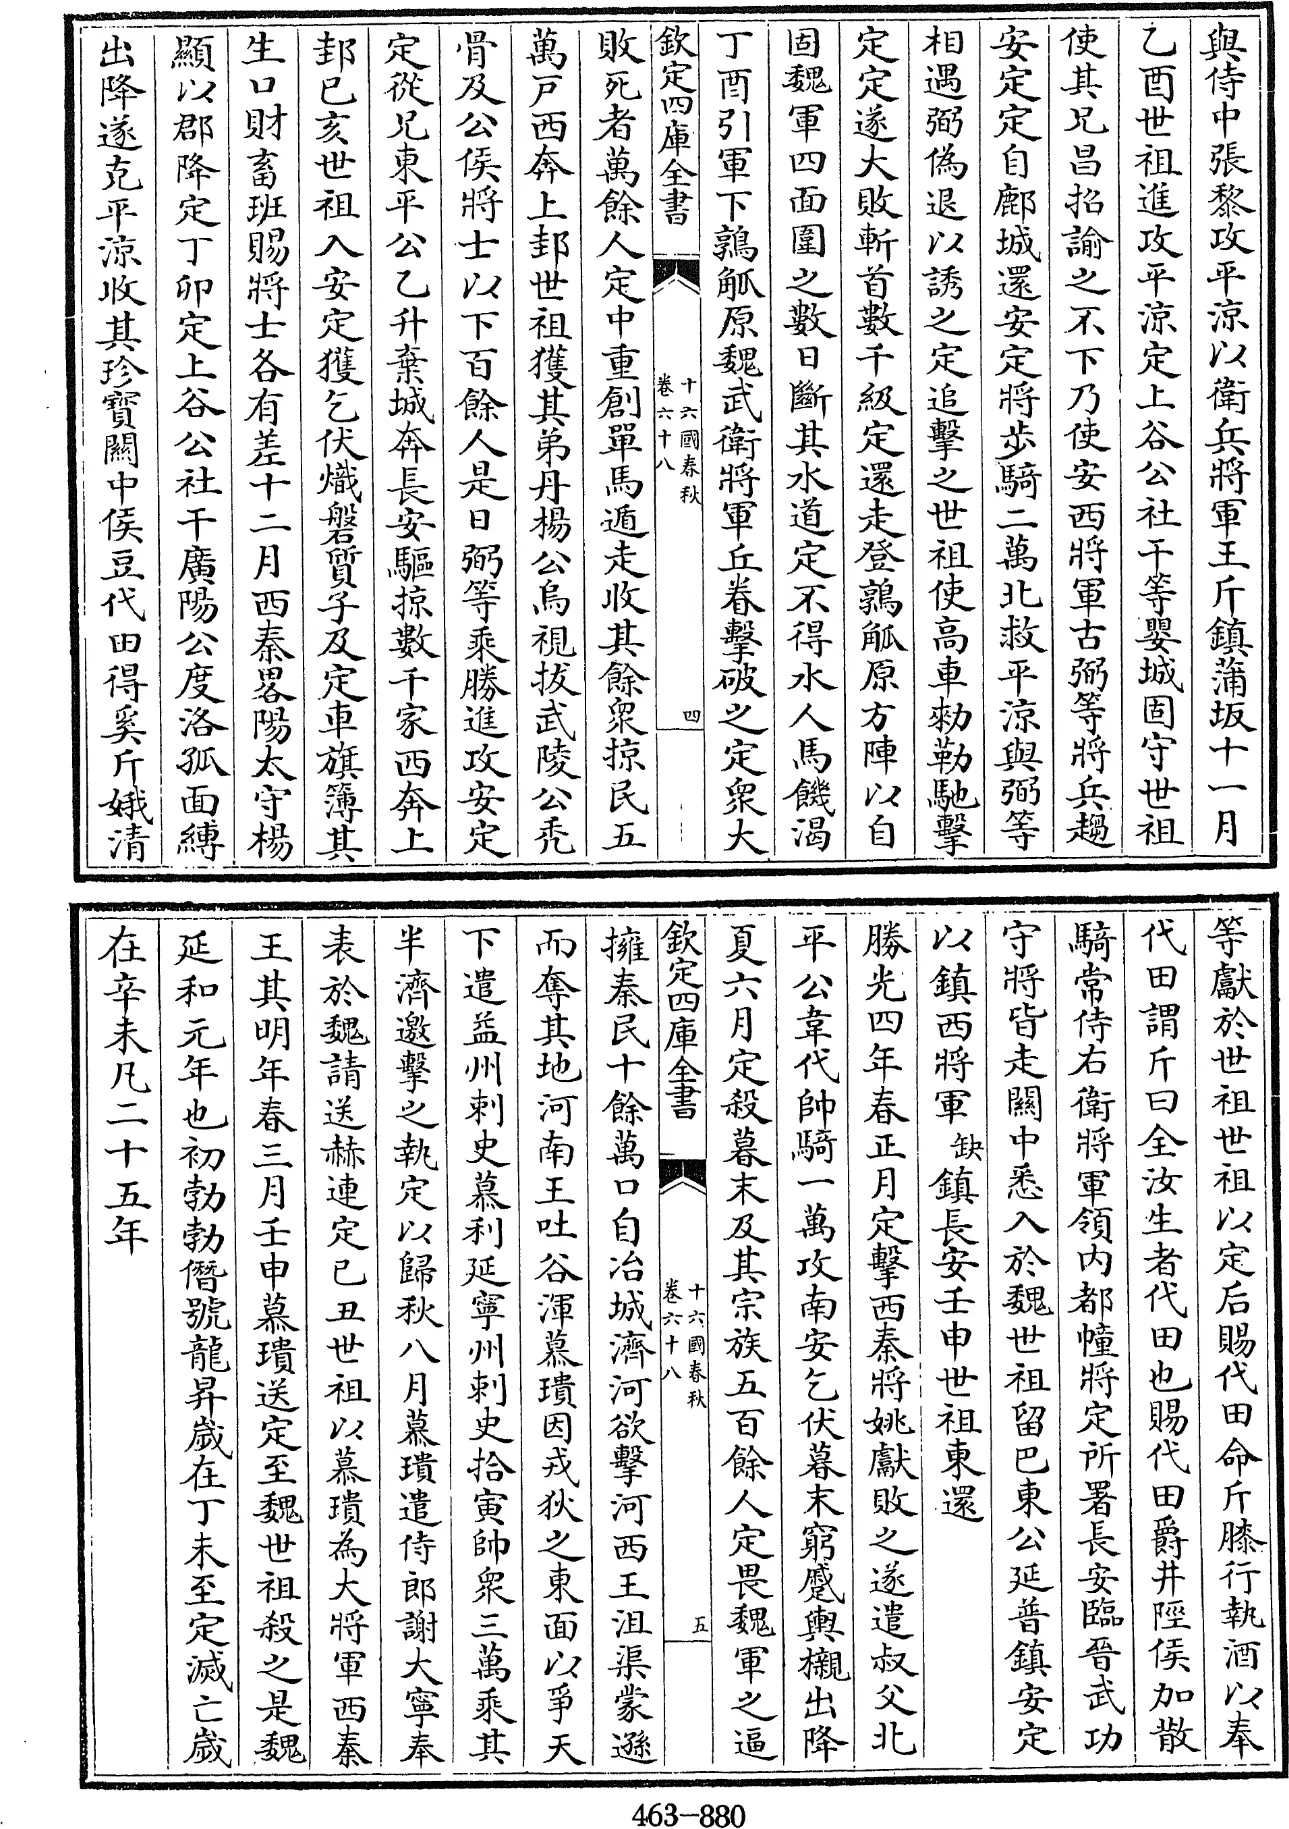 與侍中張黎攻平涼以衛兵將軍王斤鎮蒲坂十一月
乙酉世祖進攻平涼定上谷公社干等嬰城固守世祖
使其兄昌招諭之不下乃使安西將軍古弼等將兵趨
安定定自鄜城還安定將步騎二萬北救平涼與弼等
相遇弼偽退以誘之定追擊之世祖使高車勑勒馳擊
定定遂大敗斬首數千級定還走登鶉觚原方陣以自
固魏軍四面圍之數日斷其水道定不得水人馬饑渴
丁酉引軍下鶉觚原魏武衛將軍丘眷擊破之定衆大
欽定四庫全書
十六國春秋
卷六十八
四
敗死者萬餘人定中重創單馬遁走收其餘衆掠民五
萬戸西奔上邽世祖獲其弟丹楊公烏視拔武陵公禿
骨及公侯將士以下百餘人是日弼等乘勝進攻安定
定從兄東平公乙升棄城奔長安驅掠數千家西奔上
邽已亥世祖入安定獲乞伏熾磐質子及定車旗簿其
生口財畜班賜將士各有差十二月西秦畧陽太守楊
顯以郡降定丁卯定上谷公社干廣陽公度洛孤面縛
出降遂克平涼收其珍寶關中侯豆代田得奚斤娥清
等獻於世祖世祖以定后賜代田命斤膝行執酒以奉
代田謂斤曰全汝生者代田也賜代田爵井陘侯加散
騎常侍右衛將軍領内都幢將定所署長安臨晉武功
守將皆走關中悉入於魏世祖留巴東公延普鎮安定
以鎮西將軍缺鎮長安壬申世祖東還
勝光四年春正月定擊西秦將姚獻敗之遂遣叔父北
平公韋代帥騎一萬攻南安乞伏暮末窮蹙輿櫬出降
夏六月定殺暮末及其宗族五百餘人定畏魏軍之逼
欽定四庫全書
十六國春秋
卷六十八
五
擁秦民十餘萬口自治城濟河欲擊河西王沮渠蒙遜
而奪其地河南王吐谷渾慕璝因戎狄之東面以爭天
下遣益州刺史慕利延寧州刺史拾寅帥衆三萬乘其
半濟邀擊之執定以歸秋八月慕璝遣侍郎謝大寧奉
表於魏請送赫連定已丑世祖以慕璝為大將軍西秦
王其明年春三月壬申慕璝送定至魏世祖殺之是魏
延和元年也初勃勃僭號龍昇歲在丁未至定滅亡歲
在辛未凡二十五年
463-880